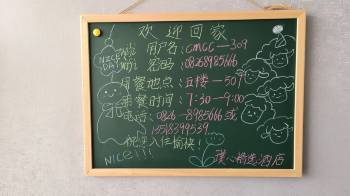 欢迎回家
NICE DAY
用户名:CMCC-309
密码:08268985666
用餐地点:五楼-501
早餐时间:7:30-9:00
电话:0826-8985666或
13518399539
祝您入住愉快!
NICE!!!!
精选酒店